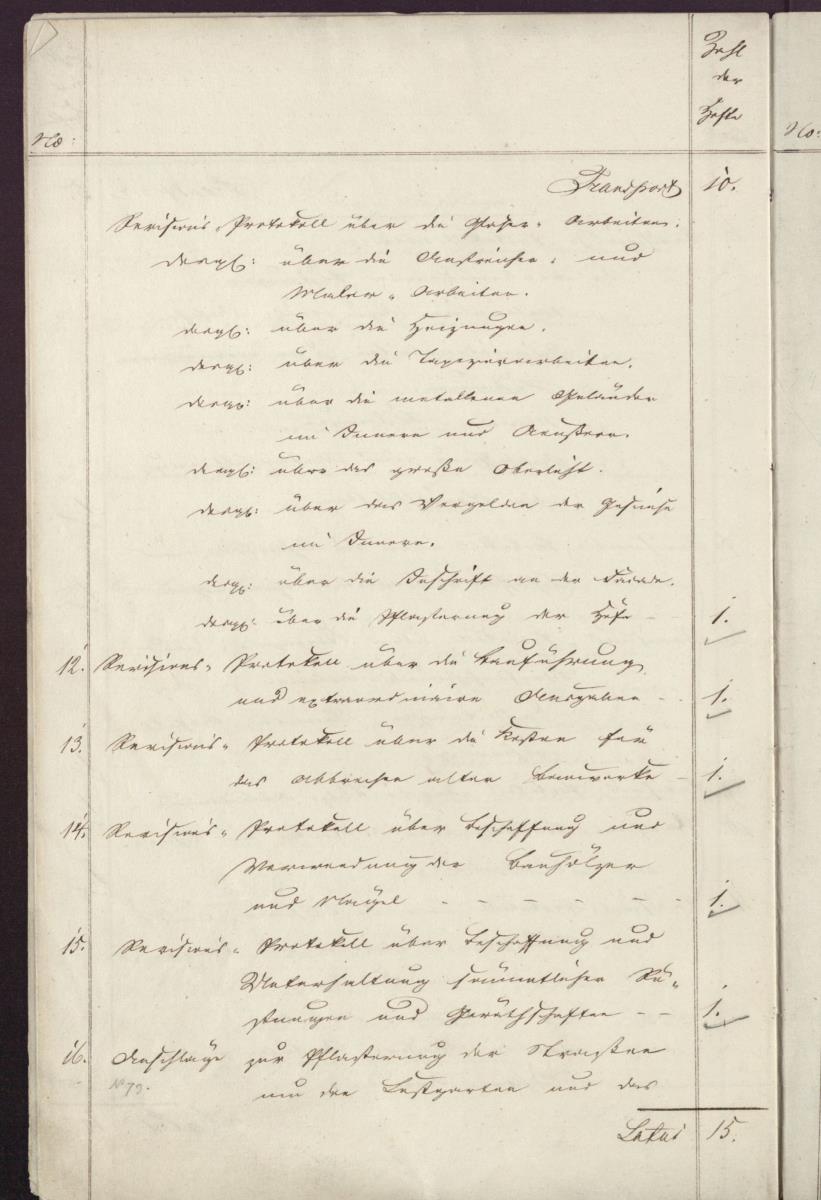 Zahl
der
Hefte
No:
No:
Transport 10.
Revisions-Protokoll über die Glaser-Arbeiten.
dergl: über die Anstreicher- und
Maler-Arbeiten.
dergl: über die Heizungen.
dergl: über die Tapezierarbeiten.
dergl: über die metallenen Geländer
im Innern und Aeußern.
dergl: über das große Oberlicht.
dergl: über das Vergolden der Gesimse
im Innern.
dergl: über die Inschrift an der Facade.
dergl: über die Pflasterung der Höfe — 1.
12. Revisions-Protokoll über die Bauführung
und extraordinaire Ausgaben - - 1.
13. Revisions-Protokoll über die Kosten für
das Abbrechen alter Bauwerke - 1.
14. Revisions-Protokoll über Beschaffung und
Verwendung der Bauhölzer
und Nägel - - - - - - 1.
15. Revisions-Protokoll über Beschaffung und
Unterhaltung sämmtlicher Rü-
stungen und Geräthschaften - - 1.
16. Anschläge zur Pflasterung der Straßen
No 79. um den Lustgarten und das
Latus 15.